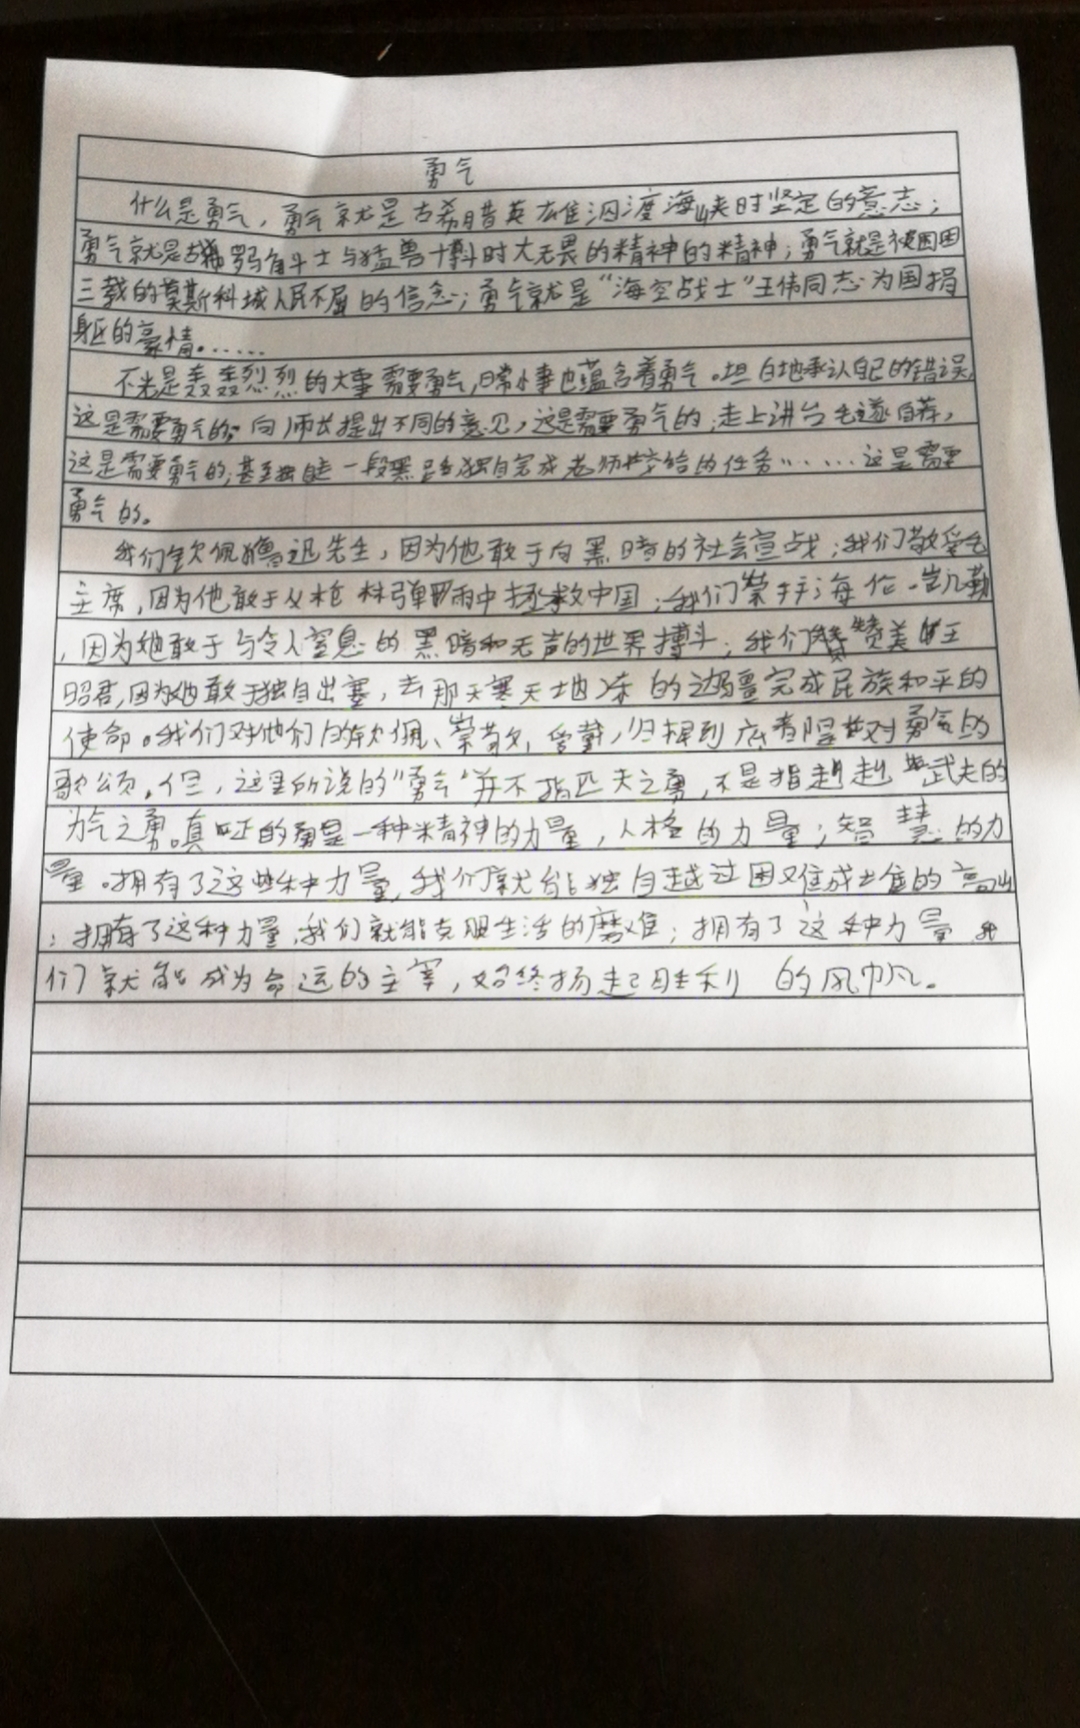 勇气
什么是勇气，勇气就是古希腊英雄泅渡海峡时坚定的意志；
勇气就是古罗马角斗士与猛兽搏时大无畏的精神的精神；勇气就是被围困
三载的莫斯科城人民不屈的信念；勇气就是“海空战士”王伟同志为国捐
躯的豪情……
不光是轰轰烈烈的大事需要勇气,日常小事也蕴含着勇气。坦白地承认自己的错误,
这是需要勇气的;向师长提出不同的意见,这是需要勇气的;走上讲台毛遂自荐,
这是需要勇气的;甚至独自走一段黑路独自完成老师交给的任务……这是需要
勇气的。
我们钦佩鲁迅先生，因为他敢于向黑暗的社会宣战；我们敬爱毛
主席，因为他敢于从枪林弹雨中拯救中国；我们崇拜海伦·凯勒
，因为她敢于与令人窒息的黑暗和无声的世界搏斗；我们赞美王
昭君,因为她敢于独自出塞，去那天寒天地冻的边疆完成民族和平的
使命。我们对他们的钦佩、崇敬、爱戴，归根到底都是对勇气的
歌颂。但，这里所说的“勇气”并不指匹夫之勇，不是指赳赳武夫的
力气之勇。真正的勇是一种精神的力量，人格的力量；智慧的力
量。拥有了这些种力量,我们就能独自越过困难或世俗的高山
；拥有了这种力量,我们就能克服生活的磨难；拥有了这种力量我
们就能成为命运的主宰，始终扬起胜利的风帆。